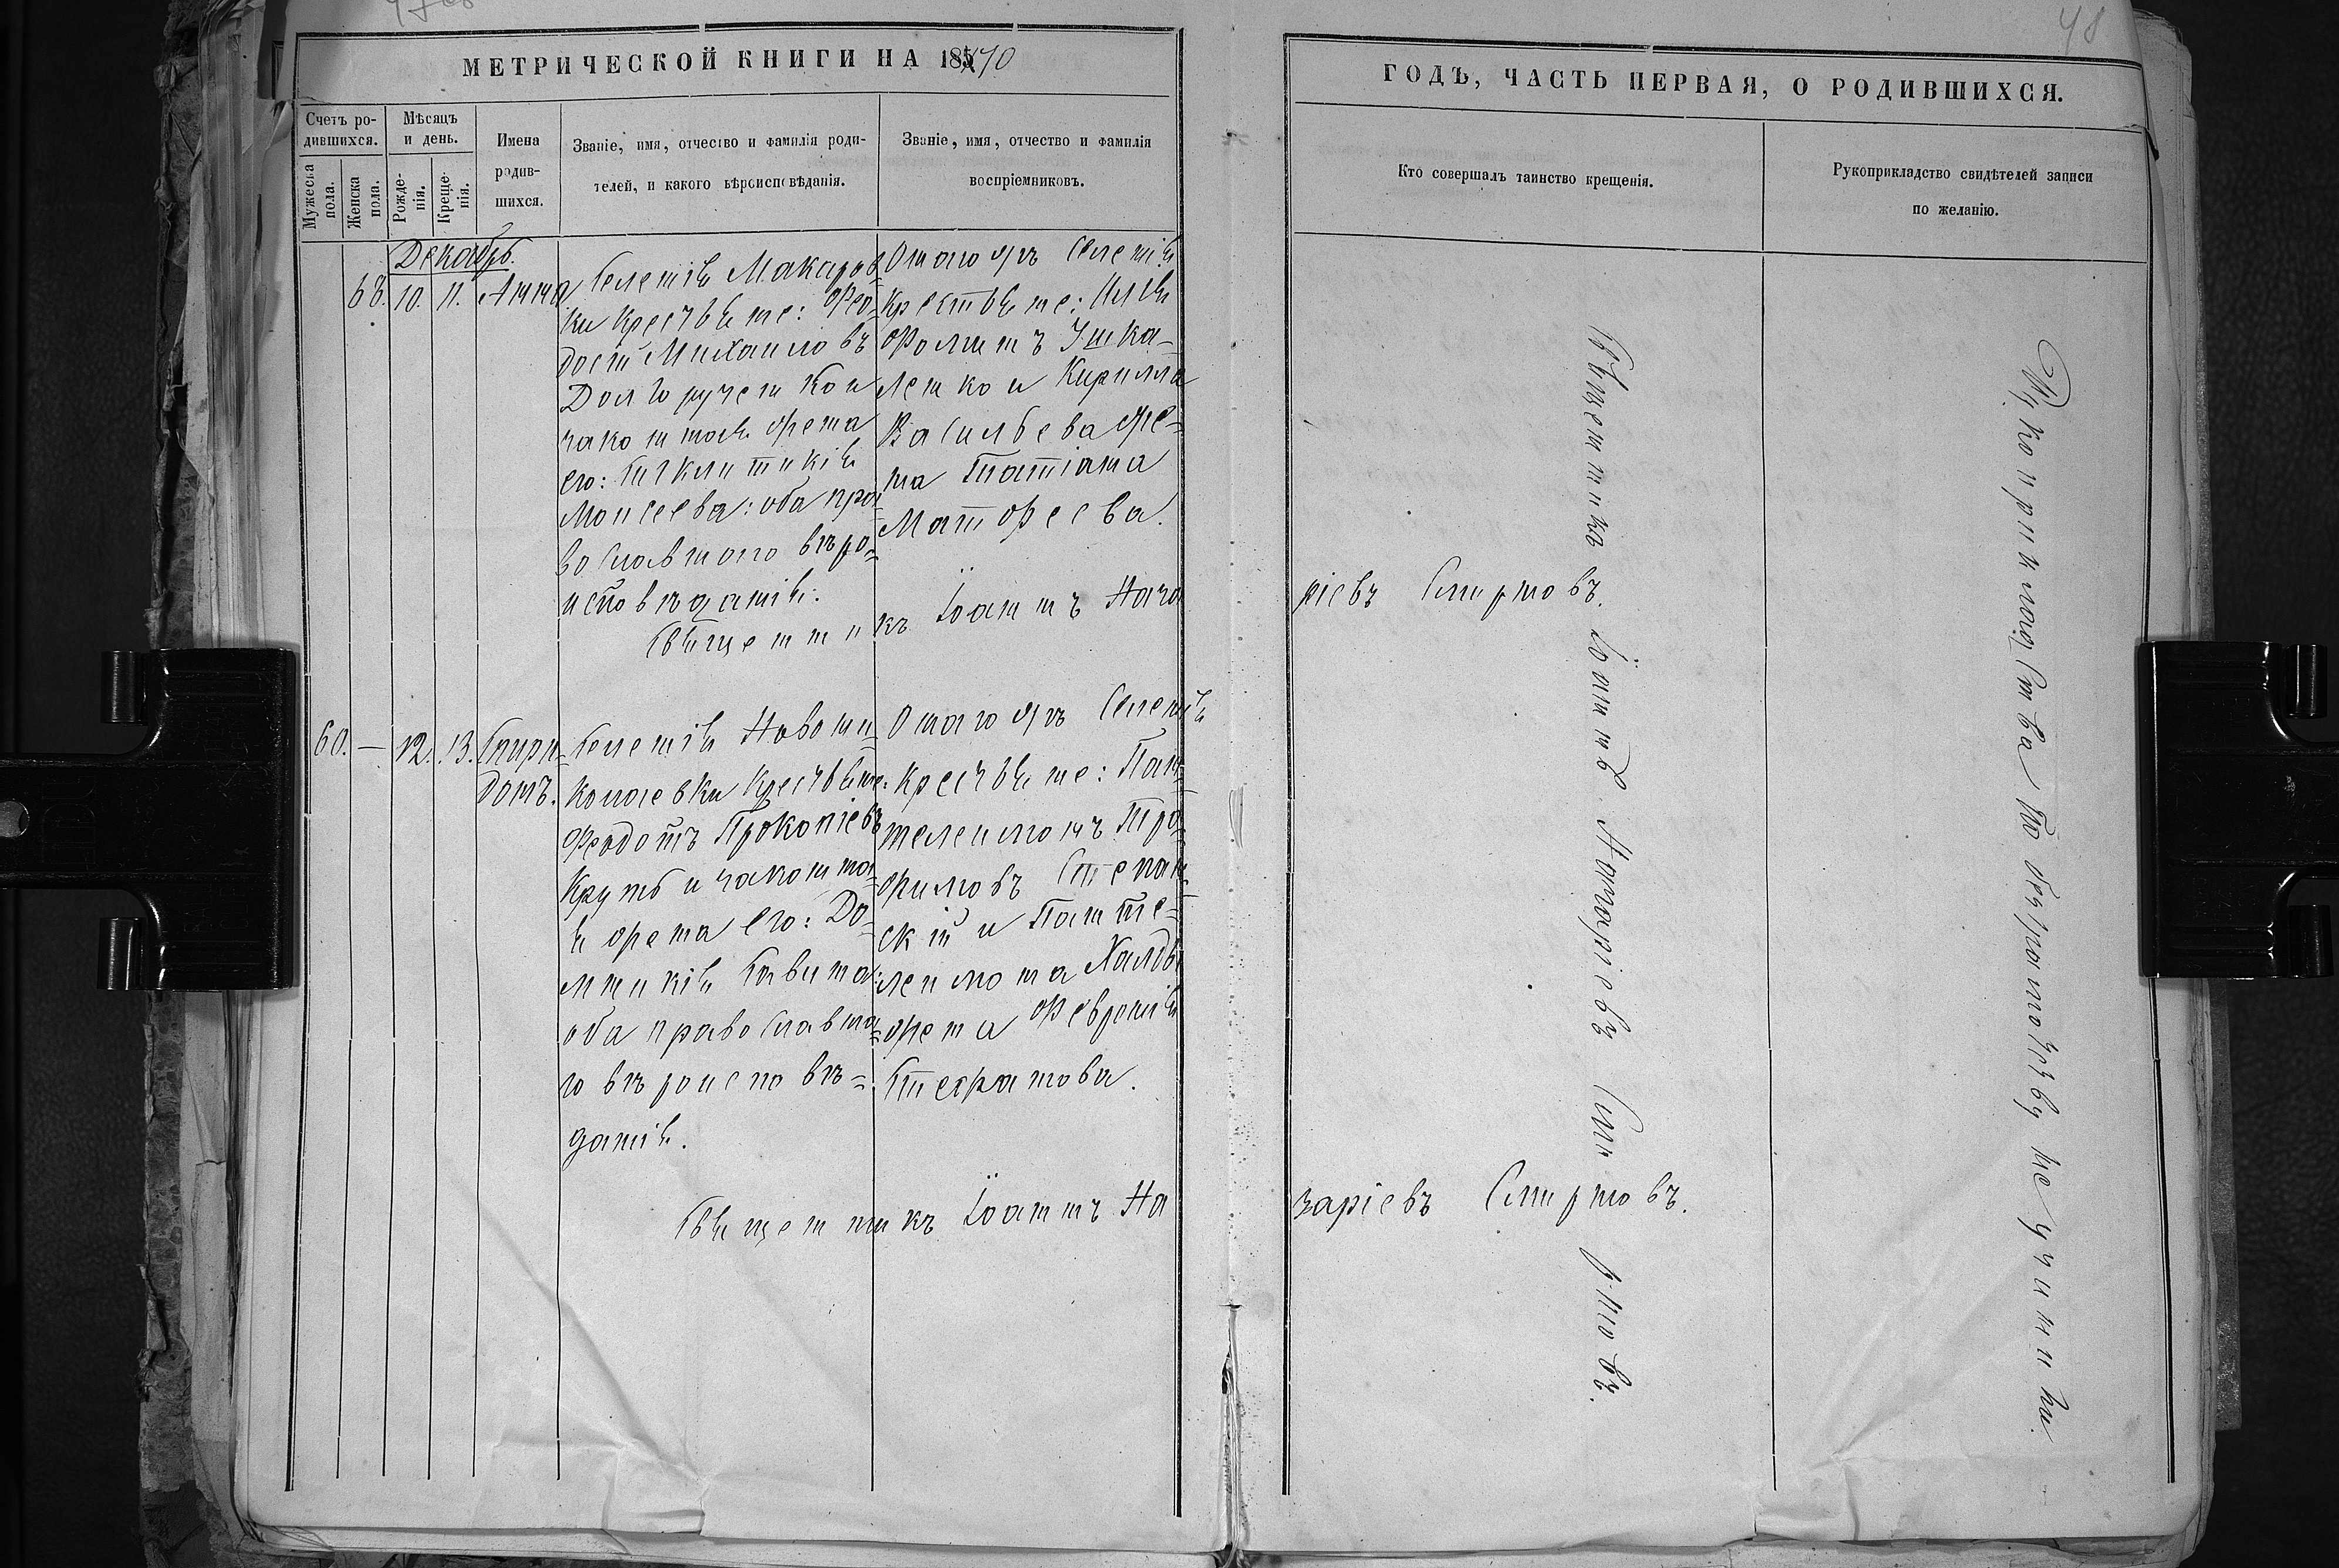 48
МЕТРИЧЕСКОЙ КНИГИ НА 1870
ГОДЪ, ЧАСТЬ ПЕРВАЯ, О РОДИВШИХСЯ.
Счетъ ро-
дившихся.
Мужеска
пола.
Женска
пола.
Мѣсяцъ
и день.
Рожде-
нія.
Креще-
нія.
Имена
родив-
шихся.
Званіе, имя, отчество и фамилія роди-
телей, и какого вѣроисповѣданія.
Званіе, имя, отчество и фамилія
воспріемниковъ.
Кто совершалъ таинство крещенія.
Рукоприкладство свидѣтелей записи
по желанію.
Декабрь.
68. 10. 11. Анна
Селенія Макаров
ки крестьяне: Фео-
досій Михаиловъ
Долгорученко и
законная жена
его: Сигклитикія
Моисеева: оба пра-
вославнаго вѣро-
исповѣданія.
Онаго жъ Селенія
крестьяне: Илія
Фоминъ Ушка-
ленко и Кирилла
Васильева же-
на Татіана
Матфеева.
Священникъ Іоаннъ Наза
ріевъ Смирновъ.
60. — 12. 13. Спири-
донъ.
Селенія Новони-
колаевки крестьяне:
Феодотъ Прокопіевъ
Круть и законна-
я жена его: До-
мникія Саввина:
оба православна-
го вѣроисповѣ-
данія.
Онаго жъ Селенія
крестьяне: Пан-
телеимонъ Тро-
фимовъ Степан-
скій и Панте-
леимона
жена Февронія
Стефанова.
Священникъ Іоаннъ На
заріевъ Смирновъ.
Священникъ Іоаннъ Назаріевъ Смирновъ.
Рукоприкладства по безграмотству не учинили.